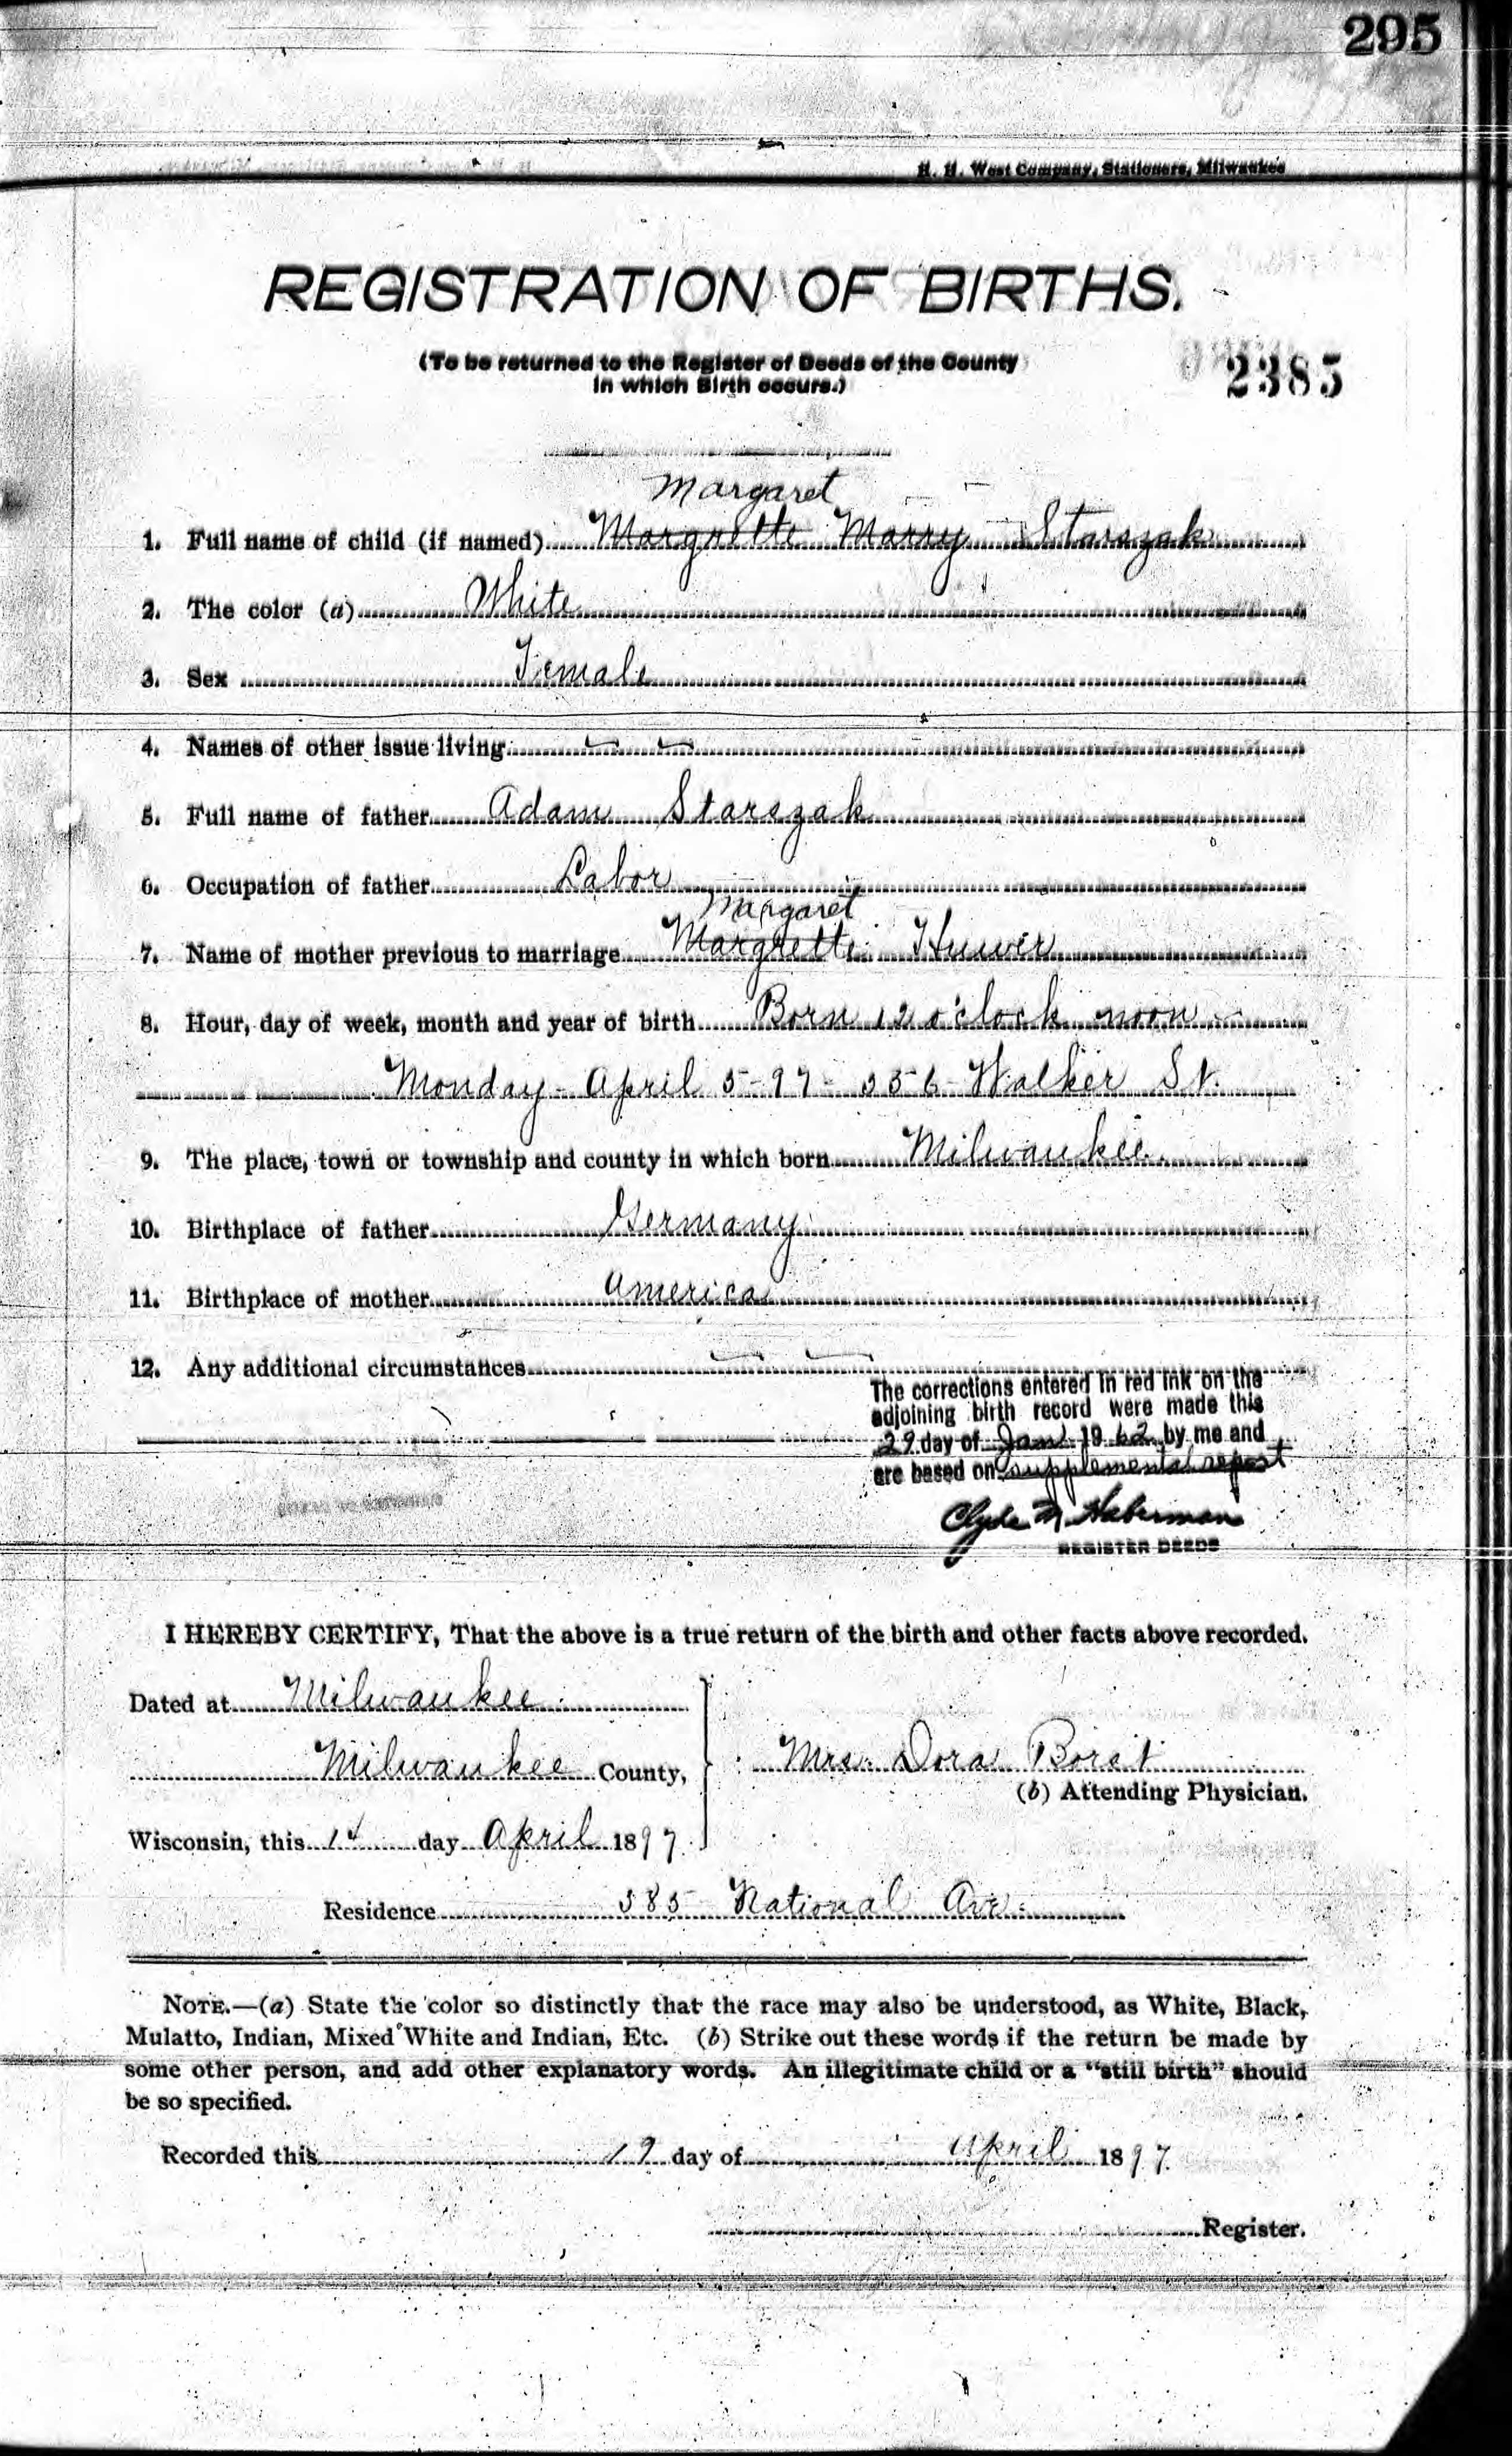 295
H. H. West Company, Stationers, Milwaukee
REGISTRATION OF BIRTHS.
(To be returned to the Register of Deeds of the County
in which Birth occurs.)
2385
Margaret
1. Full name of child (if named) Margrette Marry Starszak
2. The color (a) White
3. Sex Female
4. Names of other issue living
5. Full name of father Adam Starszak
6. Occupation of father Labor
Margaret
7. Name of mother previous to marriage Margrette Huwer
8. Hour, day of week, month and year of birth Born 12 o'clock noon
Monday - April 5-97- 356 Walker St.
9. The place, town or township and county in which born Milwaukee
10. Birthplace of father Germany
11. Birthplace of mother America
12. Any additional circumstances
The corrections entered in red ink on the
adjoining birth record were made this
29 day of Jan 1962 by me and
are based on supplemental report
Clyde M Haberman
REGISTER DEEDS
I HEREBY CERTIFY, That the above is a true return of the birth and other facts above recorded.
Dated at Milwaukee
Milwaukee County,
Mrs. Dora Borst
(b) Attending Physician.
Wisconsin, this 14 day April 1897.
Residence 385 National Ave.
NOTE.—(a) State the color so distinctly that the race may also be understood, as White, Black,
Mulatto, Indian, Mixed White and Indian, Etc. (b) Strike out these words if the return be made by
some other person, and add other explanatory words. An illegitimate child or a "still birth" should
be so specified.
Recorded this 19 day of April 1897.
Register.